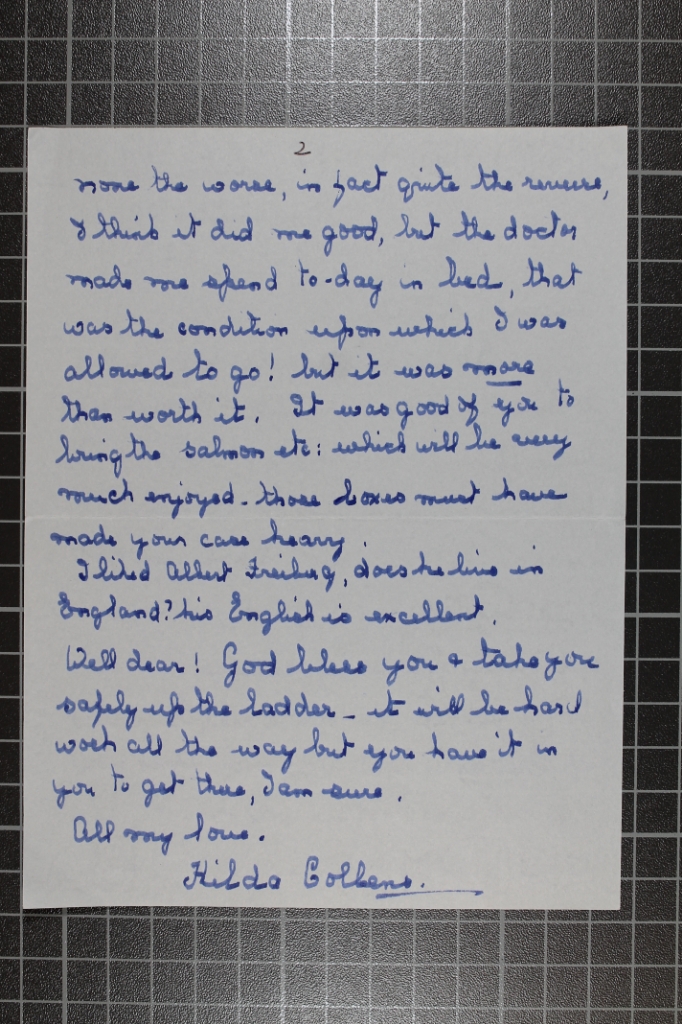 2
none the worse, in fact quite the reverse,
I think it did me good, but the doctor
made me spend to-day in bed, that
was the condition upon which I was
allowed to go! but it was more
than worth it. It was good of you to
bring the salmon etc: which will be very
much enjoyed - those boxes must have
made your case heavy.
I liked Albert Freiberg, does he live in
England? his English is excellent.
Well dear! God bless you & take you
safely up the ladder - it will be hard
work all the way but you have it in
you to get there, I am sure.
All my love.
Hilda Collens.